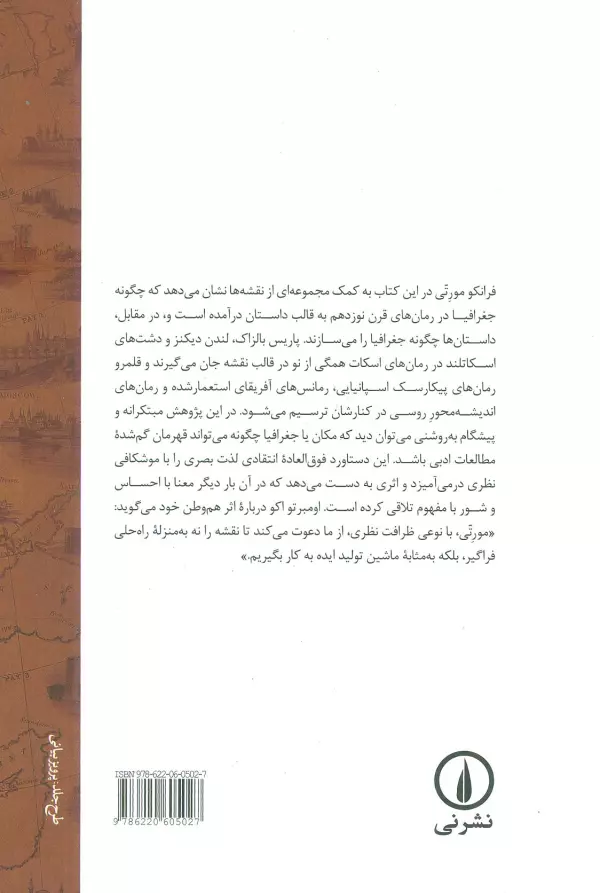 فرانکو مورتّی در این کتاب به کمک مجموعه‌ای از نقشه‌ها نشان می‌دهد که چگونه
جغرافیا در رمان‌های قرن نوزدهم به قالب داستان درآمده است و، در مقابل،
داستان‌ها چگونه جغرافیا را می‌سازند. پاریس بالزاک، لندن دیکنز و دشت‌های
اسکاتلند در رمان‌های اسکات همگی از نو در قالب نقشه جان می‌گیرند و قلمرو
رمان‌های پیکارسک اسپانیایی، رمانس‌های آفریقای استعمارشده و رمان‌های
اندیشه‌محورِ روسی در کنارشان ترسیم می‌شود. در این پژوهش مبتکرانه و
پیشگام به‌روشنی می‌توان دید که مکان یا جغرافیا چگونه می‌تواند قهرمان گم‌شدهٔ
مطالعات ادبی باشد. این دستاورد فوق‌العادهٔ انتقادی لذت بصری را با موشکافی
نظری درمی‌آمیزد و اثری به دست می‌دهد که در آن بار دیگر معنا با احساس
و شور با مفهوم تلاقی کرده است. اومبرتو اکو دربارهٔ اثر هم‌وطن خود می‌گوید:
«مورتّی، با نوعی ظرافت نظری، از ما دعوت می‌کند تا نقشه را نه به‌منزلهٔ راه‌حلی
فراگیر، بلکه به‌مثابهٔ ماشین تولید ایده به کار بگیریم.»
طرح جلد: پرویز بیانی
ISBN 978-622-06-0502-7
9 786220 605027
نشرنی